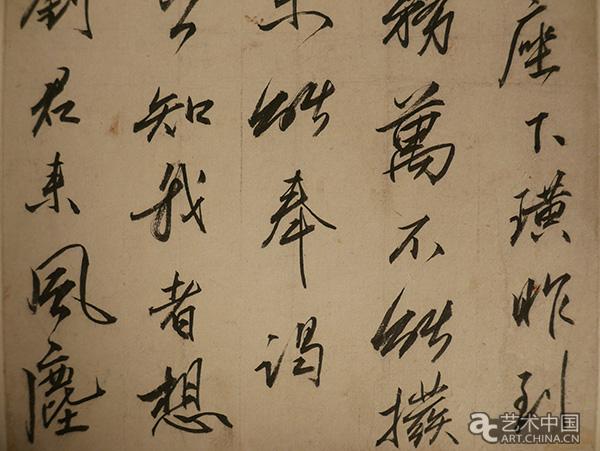 座下璜昨到
務萬不能撥
未能奉谒
知我者想
劉君来風塵
艺术中国
ART.CHINA.CN